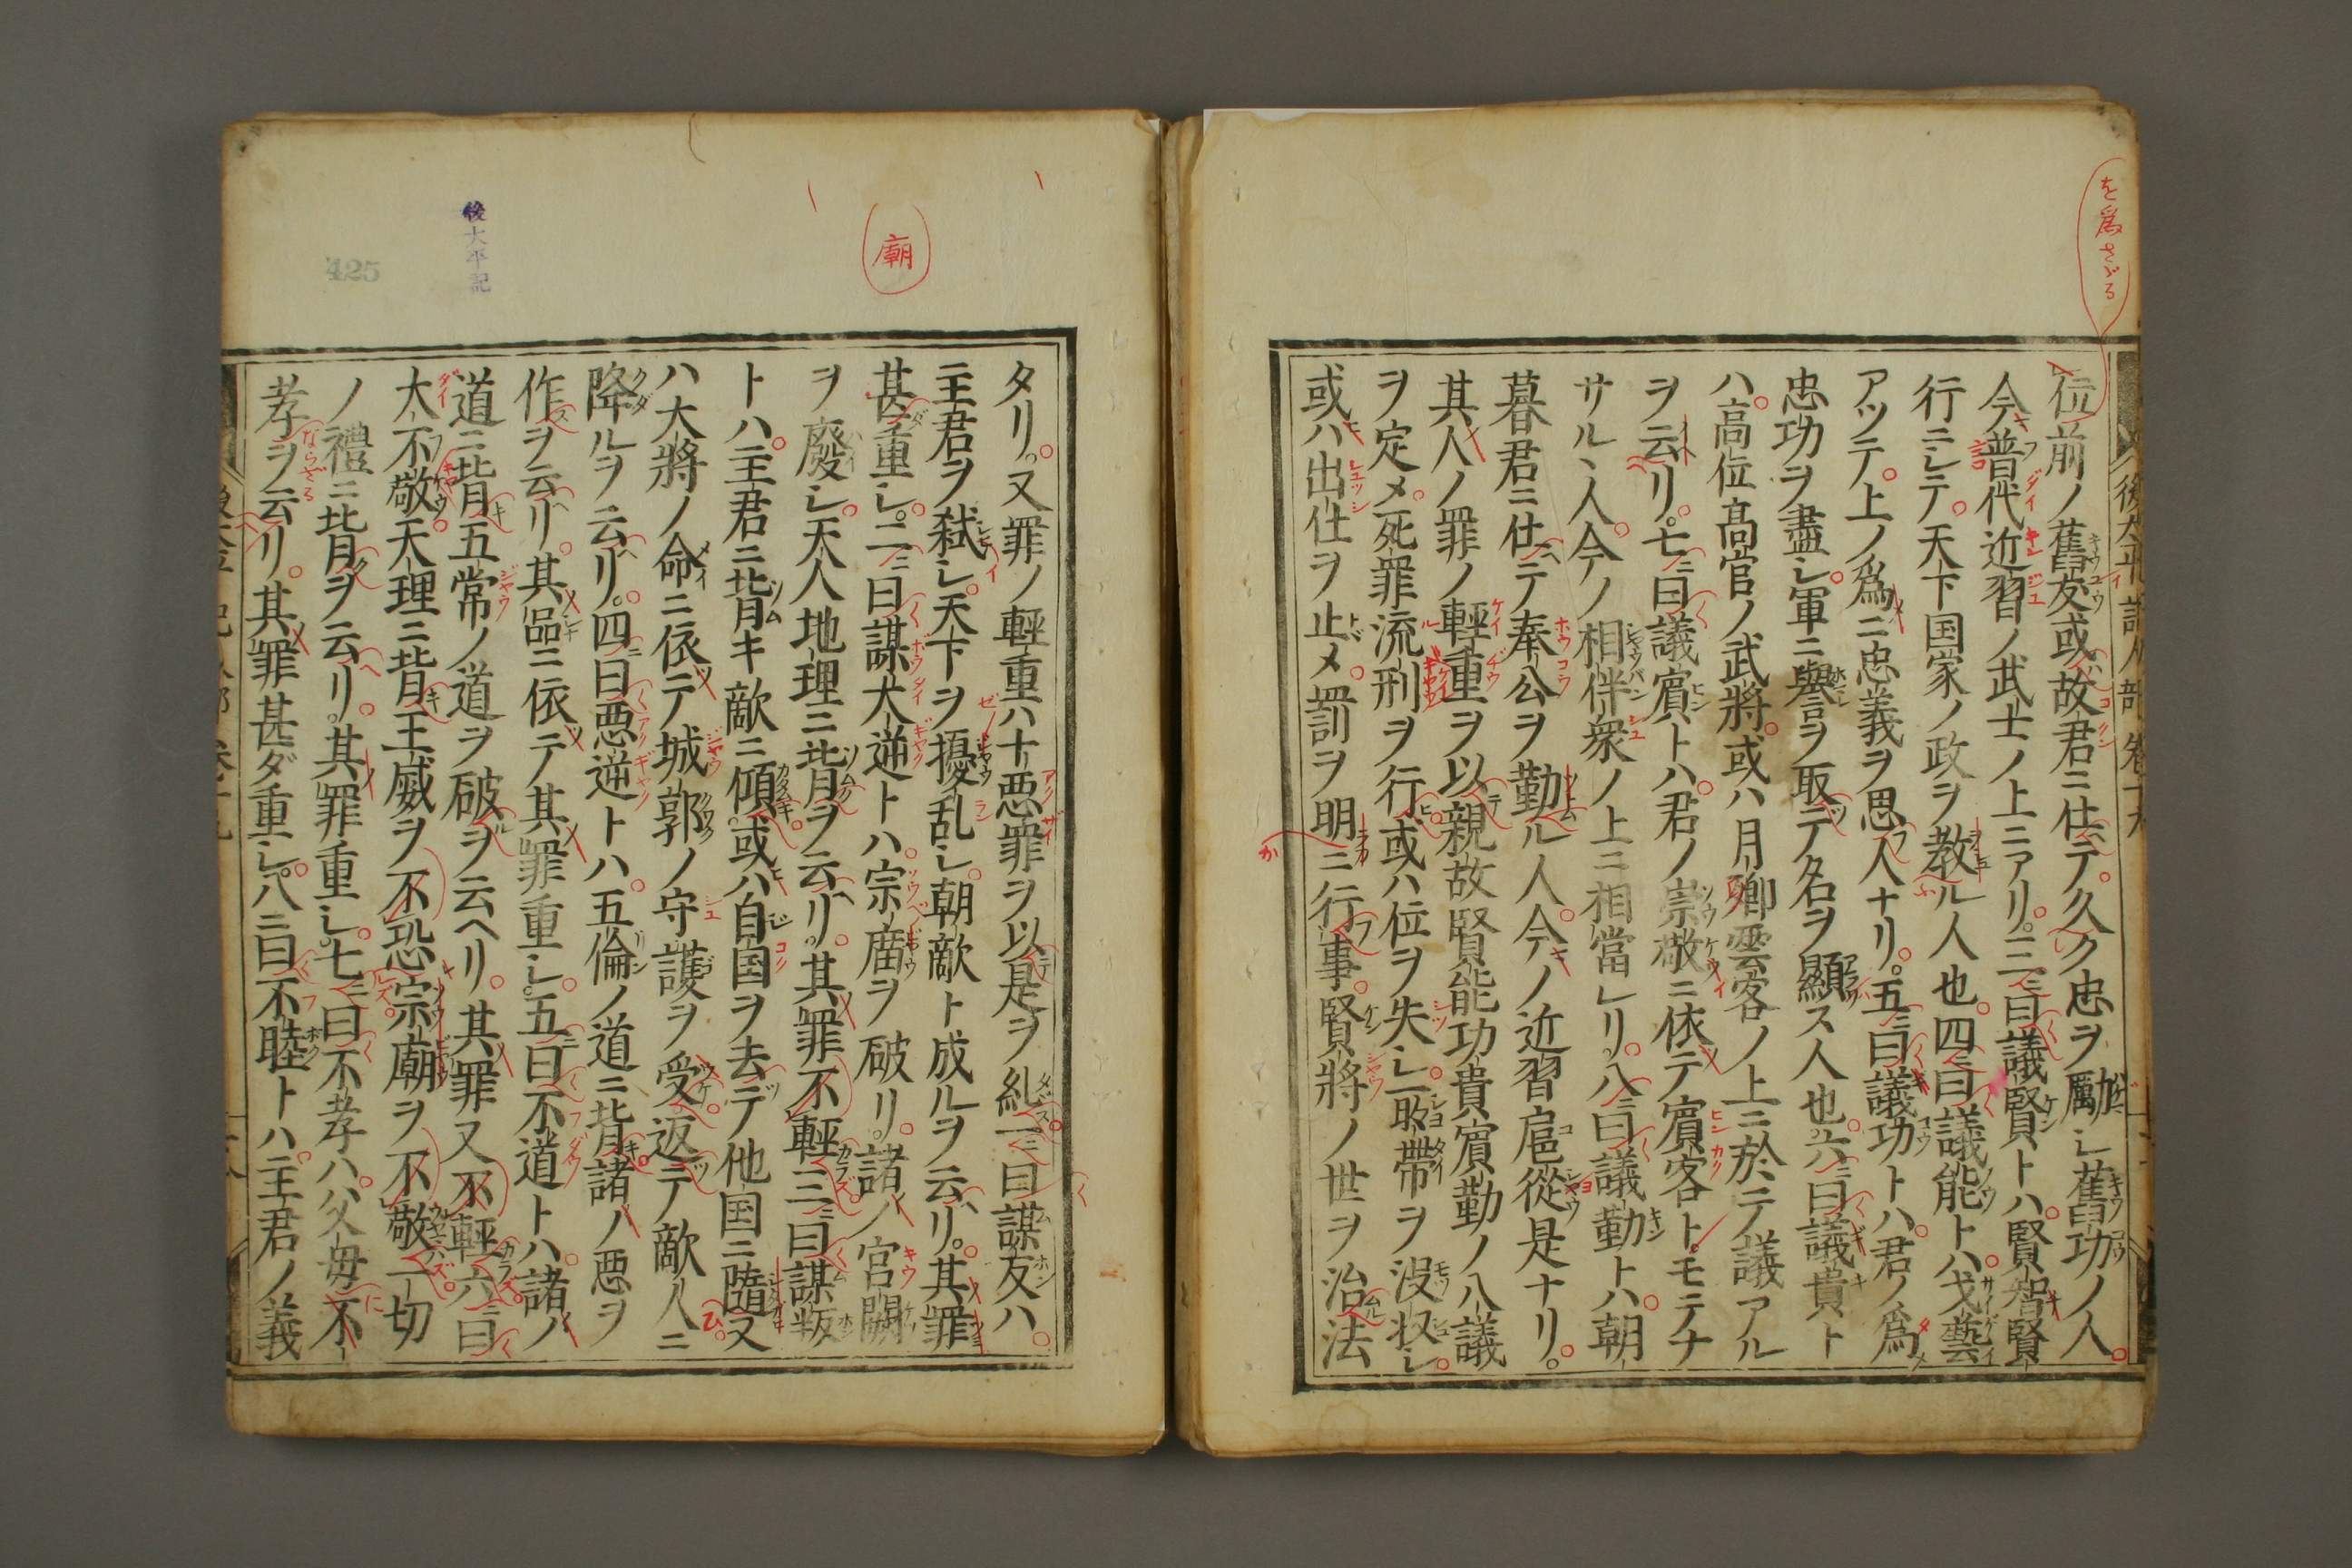 を爲さゞる
位前ノ舊友或故君ニ仕テ久ク忠ヲ勵シ舊功ノ人
今普代近習ノ武士ノ上ニアリ三ニ曰議賢トハ賢智賢
行ニシテ天下国家ノ政ヲ教ル人也四ニ曰議能トハ戈藝
アツテ上ノ爲ニ忠義ヲ思人ナリ五ニ曰議功トハ君ノ爲
忠功ヲ盡シ軍ニ譽ヲ取テ名ヲ顯ス人也六ニ曰議貴ト
ハ高位髙官ノ武將或ハ月卿雲客ノ上ニ於テ議アル
ヲ云リ七ニ曰議賓トハ君ノ崇敬ニ依テ賓客トモテナ
サルヽ人今ノ相伴衆ノ上ニ相當レリ八ニ曰議勤トハ朝
暮君ニ仕テ奉公ヲ勤ル人今ノ近習扈從是ナリ
其人ノ罪ノ輕重ヲ以親故賢能功貴賓勤ノ八議
ヲ定メ死罪流刑ヲ行或ハ位ヲ失シ所帶ヲ没収シ
或ハ出仕ヲ止メ罰ヲ明ニ行事賢將ノ世ヲ治法
廟
後太平記
425
タリ又罪ノ輕重ハ十悪罪ヲ以是ヲ糺一ニ曰謀反ハ
主君ヲ弑シ天下ヲ擾乱シ朝敵ト成ルヲ云リ其罪
甚重シ二ニ曰謀大逆トハ宗庿ヲ破リ諸ノ宮闕
ヲ廢シ天人地理ニ背ヲ云リ其罪不輕三ニ曰謀叛
トハ主君ニ背キ敵ニ傾或ハ自国ヲ去テ他国ニ隨又
ハ大將ノ命ニ依テ城郭ノ守護ヲ受返テ敵人ニ
降ルヲ云リ四ニ曰悪逆トハ五倫ノ道ニ背諸ノ悪ヲ
作ヲ云リ其品ニ依テ其罪重シ五ニ曰不道トハ諸ノ
道ニ背五常ノ道ヲ破ヲ云ヘリ其罪又不輕六ニ曰
大不敬天理ニ背王威ヲ不恐宗廟ヲ不敬一切
ノ禮ニ背ヲ云リ其罪重シ七ニ曰不孝ハ父母不
孝ヲ云リ其罪甚ダ重シ八ニ曰不睦トハ主君ノ義